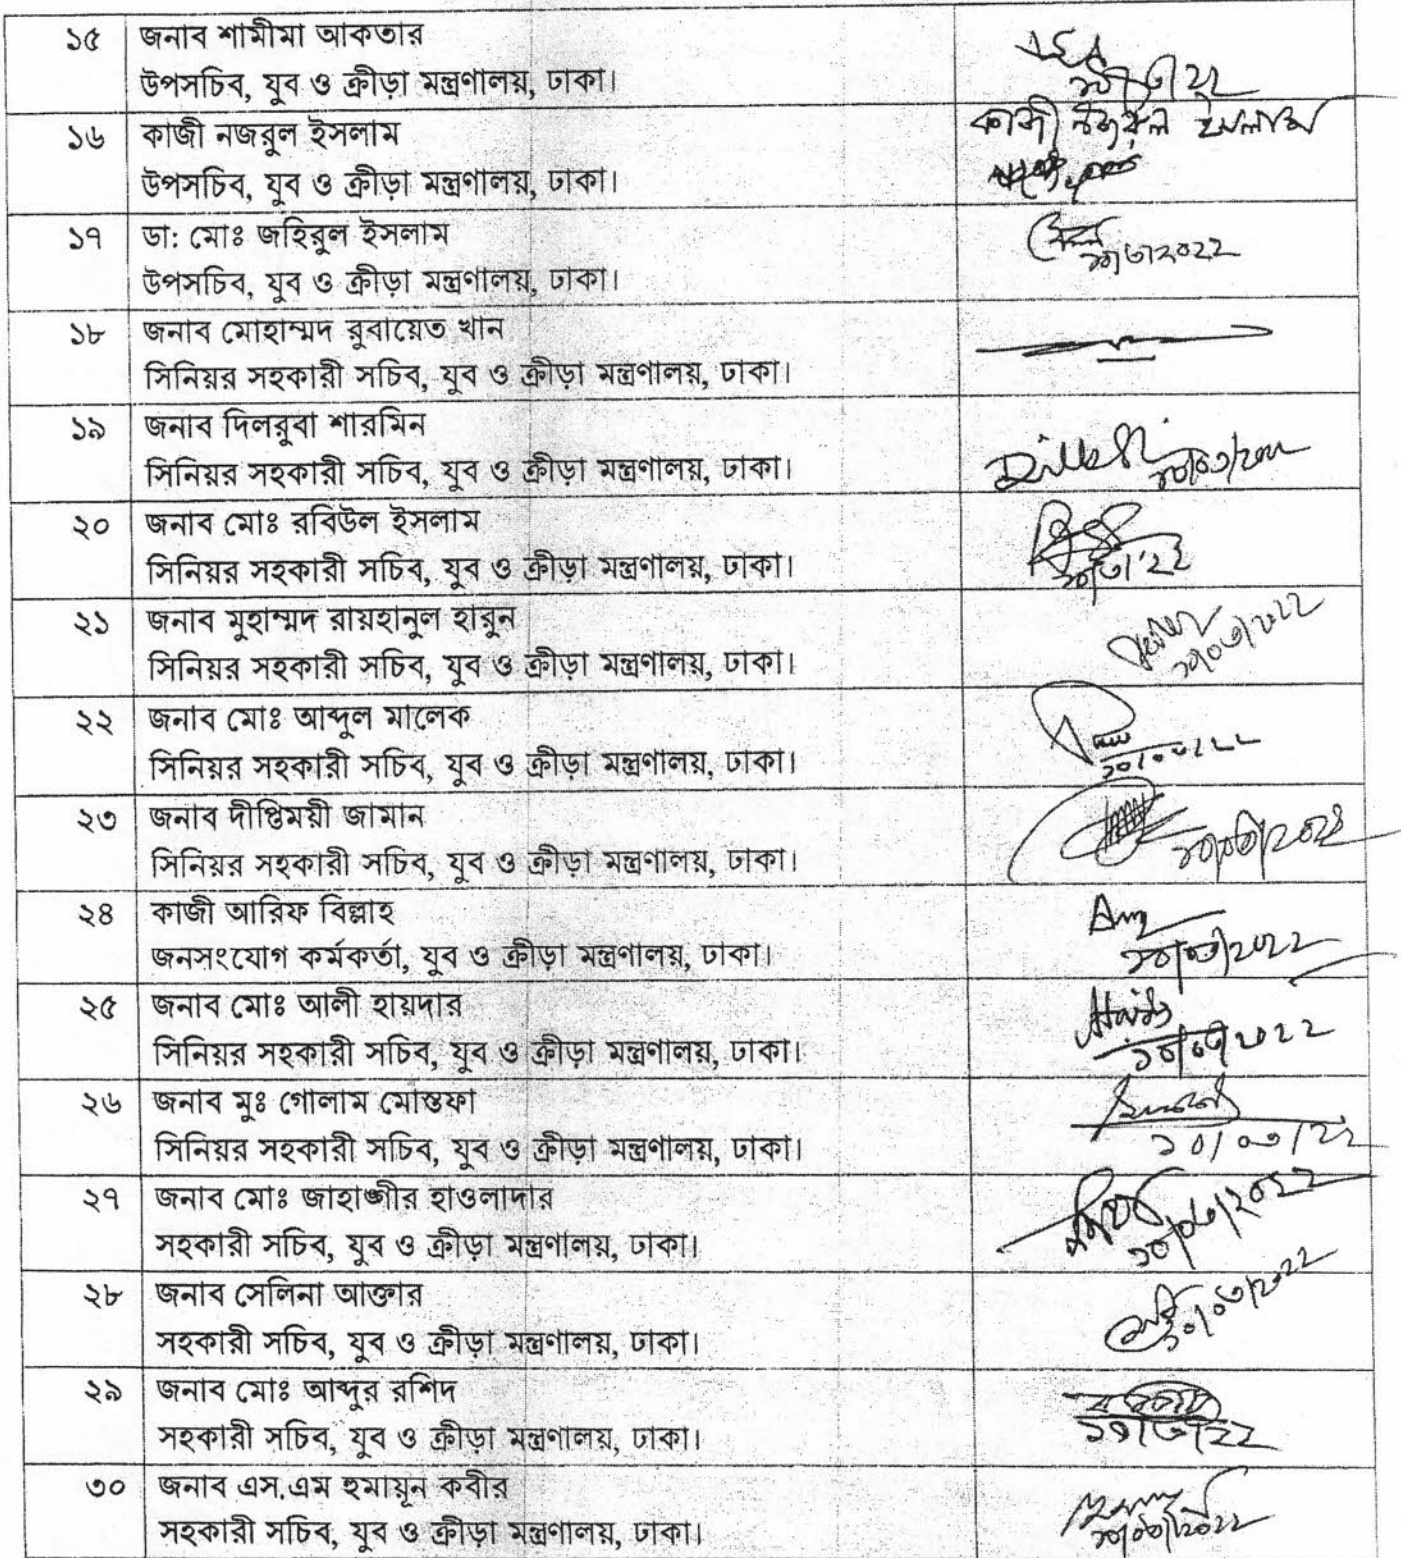 ১৫ জনাব শামীমা আকতার
উপসচিব, যুব ও ক্রীড়া মন্ত্রণালয়, ঢাকা।
১৬ কাজী নজরুল ইসলাম কাজী নজরুল ইসলাম
উপসচিব, যুব ও ক্রীড়া মন্ত্রণালয়, ঢাকা।
১৭ ডা: মোঃ জহিরুল ইসলাম
উপসচিব, যুব ও ক্রীড়া মন্ত্রণালয়, ঢাকা।
১৮ জনাব মোহাম্মদ রুবায়েত খান
সিনিয়র সহকারী সচিব, যুব ও ক্রীড়া মন্ত্রণালয়, ঢাকা।
১৯ জনাব দিলরুবা শারমিন
সিনিয়র সহকারী সচিব, যুব ও ক্রীড়া মন্ত্রণালয়, ঢাকা।
২০ জনাব মোঃ রবিউল ইসলাম
সিনিয়র সহকারী সচিব, যুব ও ক্রীড়া মন্ত্রণালয়, ঢাকা।
২১ জনাব মুহাম্মদ রায়হানুল হারুন
সিনিয়র সহকারী সচিব, যুব ও ক্রীড়া মন্ত্রণালয়, ঢাকা।
২২ জনাব মোঃ আব্দুল মালেক
সিনিয়র সহকারী সচিব, যুব ও ক্রীড়া মন্ত্রণালয়, ঢাকা।
২৩ জনাব দীপ্তিময়ী জামান
সিনিয়র সহকারী সচিব, যুব ও ক্রীড়া মন্ত্রণালয়, ঢাকা।
২৪ কাজী আরিফ বিল্লাহ
জনসংযোগ কর্মকর্তা, যুব ও ক্রীড়া মন্ত্রণালয়, ঢাকা। ১০/০৩/২০২২
২৫ জনাব মোঃ আলী হায়দার
সিনিয়র সহকারী সচিব, যুব ও ক্রীড়া মন্ত্রণালয়, ঢাকা। ১০/০৩/২০২২
২৬ জনাব মুঃ গোলাম মোস্তফা
সিনিয়র সহকারী সচিব, যুব ও ক্রীড়া মন্ত্রণালয়, ঢাকা। ১০/০৩/২২
২৭ জনাব মোঃ জাহাঙ্গীর হাওলাদার
সহকারী সচিব, যুব ও ক্রীড়া মন্ত্রণালয়, ঢাকা। ১০/০৩/২০২২
২৮ জনাব সেলিনা আক্তার
সহকারী সচিব, যুব ও ক্রীড়া মন্ত্রণালয়, ঢাকা। ১০/০৩/২০২২
২৯ জনাব মোঃ আব্দুর রশিদ
সহকারী সচিব, যুব ও ক্রীড়া মন্ত্রণালয়, ঢাকা। ১০/৩/২২
৩০ জনাব এস.এম হুমায়ূন কবীর
সহকারী সচিব, যুব ও ক্রীড়া মন্ত্রণালয়, ঢাকা। ১০/০৩/২০২২